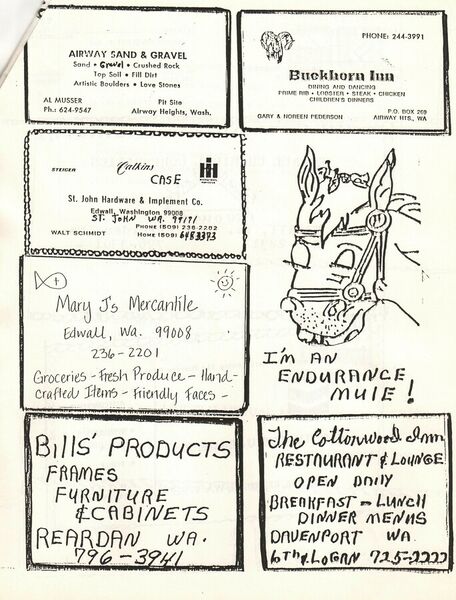 AIRWAY SAND & GRAVEL
Sand • Gravel • Crushed Rock
Top Soil • Fill Dirt
Artistic Boulders • Love Stones
AL MUSSER
Ph.: 624-9547
Pit Site
Airway Heights, Wash.
PHONE: 244-3991
Buckhorn Inn
DINING AND DANCING
PRIME RIB • LOBSTER • STEAK • CHICKEN
CHILDREN'S DINNERS
GARY & NOREEN PEDERSON
P.O. BOX 269
AIRWAY HTS., WA
STEIGER
Calkins
CASE
St. John Hardware & Implement Co.
Edwall, Washington 99008
ST. JOHN WA. 99171
WALT SCHMIDT
PHONE (509) 236-2202
HOME (509) 648 3373
Mary J's Mercantile
Edwall, Wa. 99008
236-2201
Groceries - Fresh Produce - Hand-
crafted Items - Friendly Faces -
I'M AN
ENDURANCE
MULE!
Bills' PRODUCTS
FRAMES
FURNITURE
& CABINETS
REARDAN WA.
796-3941
The Cottonwood Inn
RESTAURANT & LOUNGE
OPEN DAILY
BREAKFAST - LUNCH
DINNER MENUS
DAVENPORT WA.
6th & LOGAN 725-2222